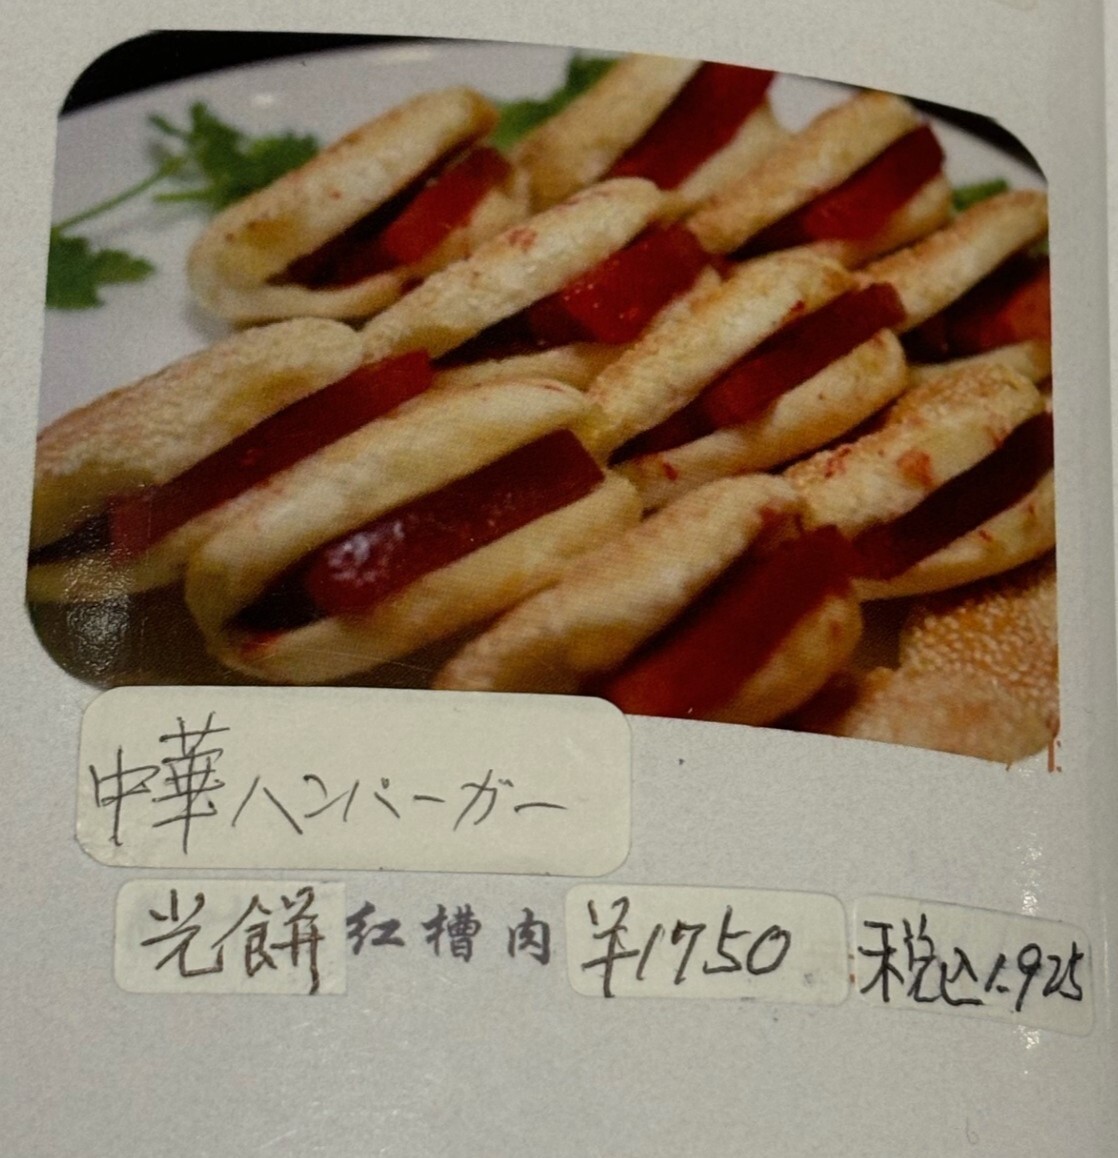 中華ハンバーガー
光餅 红槽肉 ¥1750 税込1.925